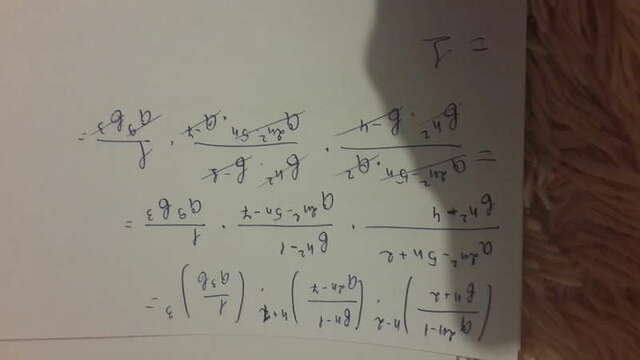 (a^{2n-1}/b^{n+2})^{n-2} · (b^{n-1}/a^{2n-7})^{n+1} · (1/a^3b)^3 =
a^{2n^2-5n+2}/b^{n^2-4} · b^{n^2-1}/a^{2n^2-5n-7} · 1/a^9b^3 =
= a^{2n^2-5n}·a^2/b^{n^2}·b^{-4} · b^{n^2}·b^{-1}/a^{2n^2-5n}·a^{-7} · 1/a^9b^3 =
= 1